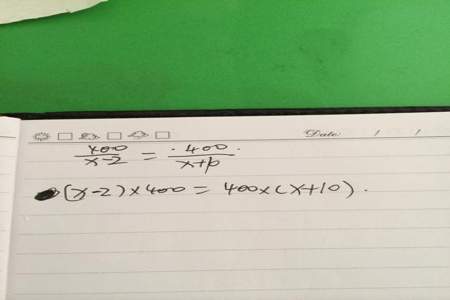 Date: / /
400/(x-2) = 400/(x+10)
(x-2)×400 = 400×(x+10).